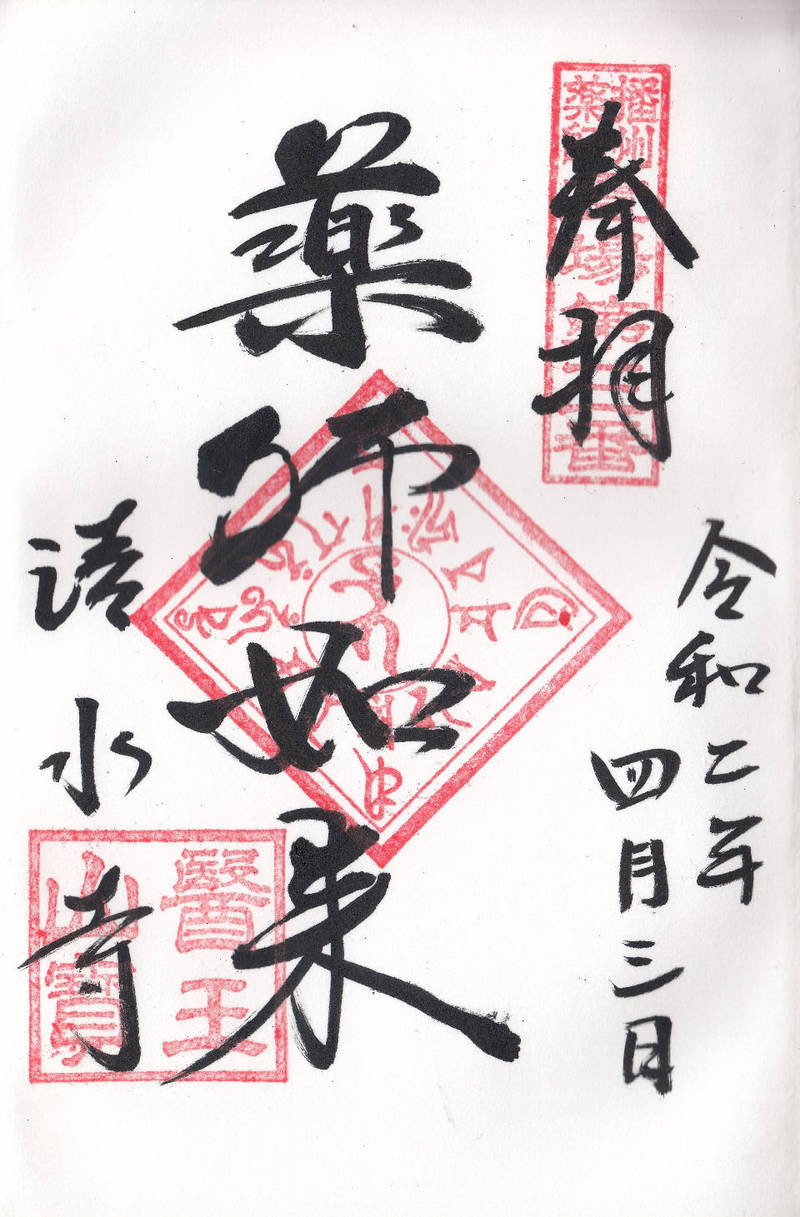 播州
薬師
霊場
奉拝
令和二年
四月三日
薬師如来
清水寺
醫王
山寶